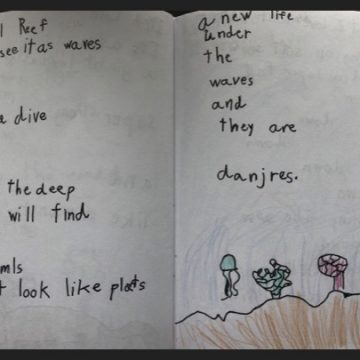 l Reef
see it as waves
a dive
the deep
will find
mls
t look like plats
a new life
under
the
waves
and
they are
danjres.